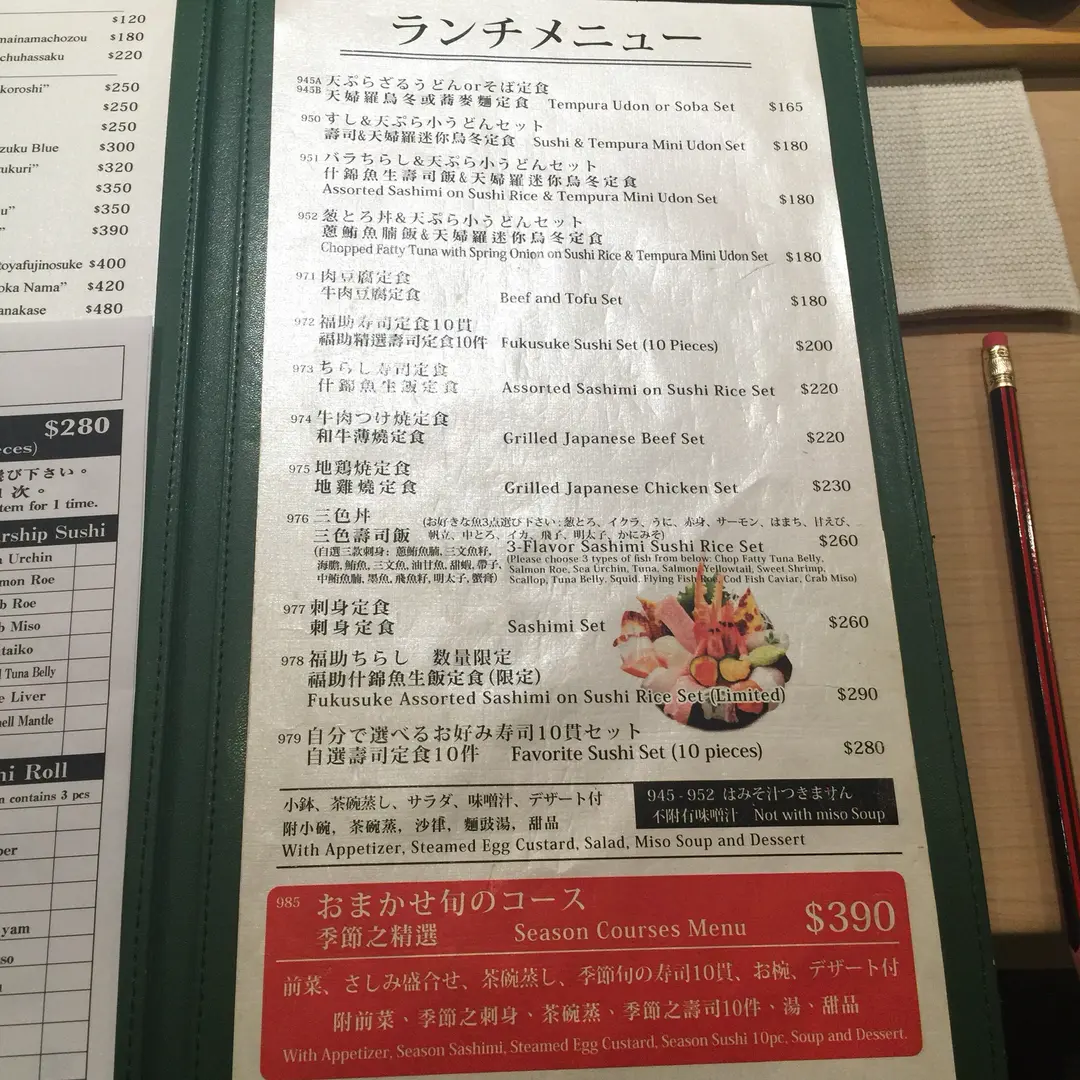 $120
mainamachozou $180
chuhassaku $220
koroshi” $250
$250
$250
zuku Blue $300
ukuri” $320
$350
u” $350
” $390
toyafujinosuke $400
oka Nama” $420
anakase $480
$280
ces)
び下さい。
次。
tem for 1 time.
rship Sushi
Urchin
mon Roe
b Roe
b Miso
taiko
Tuna Belly
e Liver
ell Mantle
ni Roll
n contains 3 pcs
per
yam
so
ランチメニュー
945A 天ぷらざるうどんorそば定食
945B 天婦羅烏冬或蕎麥麵定食 Tempura Udon or Soba Set $165
950 すし&天ぷら小うどんセット
壽司&天婦羅迷你烏冬定食 Sushi & Tempura Mini Udon Set $180
951 バラちらし&天ぷら小うどんセット
什錦魚生壽司飯&天婦羅迷你烏冬定食
Assorted Sashimi on Sushi Rice & Tempura Mini Udon Set $180
952 葱とろ丼&天ぷら小うどんセット
蔥鮪魚腩飯&天婦羅迷你烏冬定食
Chopped Fatty Tuna with Spring Onion on Sushi Rice & Tempura Mini Udon Set $180
971 肉豆腐定食
牛肉豆腐定食 Beef and Tofu Set $180
972 福助寿司定食10貫
福助精選壽司定食10件 Fukusuke Sushi Set (10 Pieces) $200
973 ちらし寿司定食
什錦魚生飯定食 Assorted Sashimi on Sushi Rice Set $220
974 牛肉つけ焼定食
和牛薄燒定食 Grilled Japanese Beef Set $220
975 地鶏焼定食
地雞燒定食 Grilled Japanese Chicken Set $230
976 三色丼 (お好きな魚3点選び下さい：葱とろ、イクラ、うに、赤身、サーモン、はまち、甘えび、
三色壽司飯 帆立、中とろ、イカ、飛子、明太子、かにみそ) $260
(自選三款刺身：蔥鮪魚腩, 三文魚籽, 3-Flavor Sashimi Sushi Rice Set
海膽, 鮪魚, 三文魚, 油甘魚, 甜蝦, 帶子, (Please choose 3 types of fish from below: Chop Fatty Tuna Belly,
中鮪魚腩, 墨魚, 飛魚籽, 明太子, 蟹膏) Salmon Roe, Sea Urchin, Tuna, Salmon, Yellowtail, Sweet Shrimp,
Scallop, Tuna Belly, Squid, Flying Fish Roe, Cod Fish Caviar, Crab Miso)
977 刺身定食
刺身定食 Sashimi Set $260
978 福助ちらし 数量限定
福助什錦魚生飯定食(限定)
Fukusuke Assorted Sashimi on Sushi Rice Set (Limited) $290
979 自分で選べるお好み寿司10貫セット
自選壽司定食10件 Favorite Sushi Set (10 pieces) $280
小鉢、茶碗蒸し、サラダ、味噌汁、デザート付
附小碗, 茶碗蒸, 沙律, 麵豉湯, 甜品
With Appetizer, Steamed Egg Custard, Salad, Miso Soup and Dessert
945 - 952 はみそ汁つきません
不附有味噌汁 Not with miso Soup
985 おまかせ旬のコース
季節之精選 Season Courses Menu $390
前菜、さしみ盛合せ、茶碗蒸し、季節旬の寿司10貫、お椀、デザート付
附前菜、季節之刺身、茶碗蒸、季節之壽司10件、湯、甜品
With Appetizer, Season Sashimi, Steamed Egg Custard, Season Sushi 10pc, Soup and Dessert.